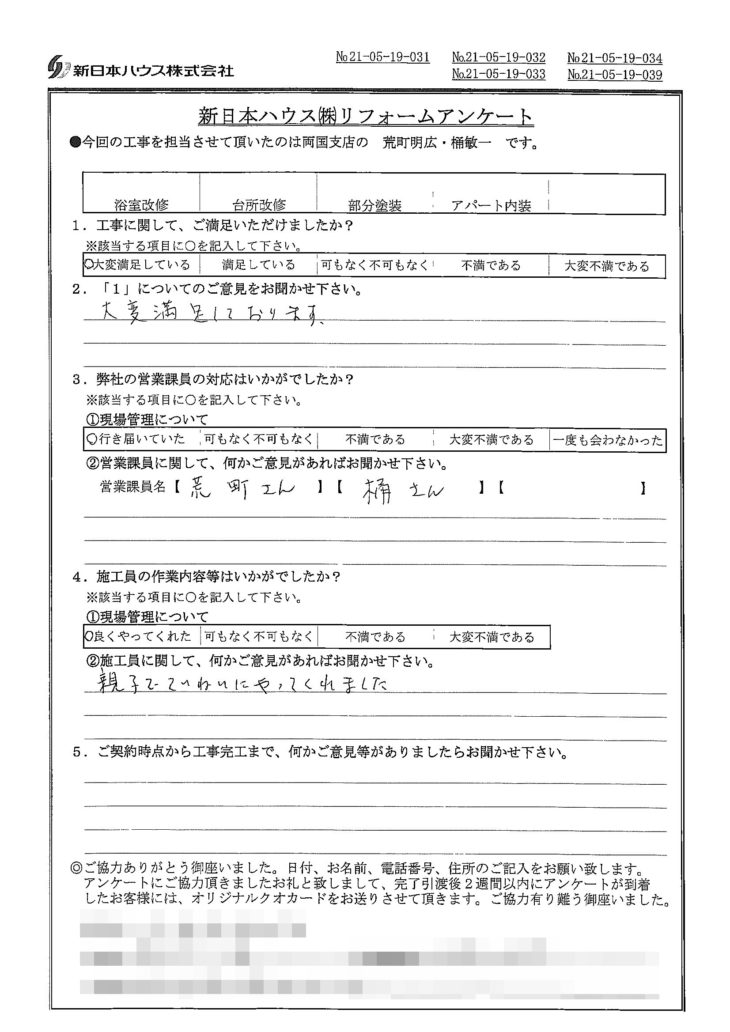 新日本ハウス株式会社
№21-05-19-031 №21-05-19-032 №21-05-19-034
№21-05-19-033 №21-05-19-039
新日本ハウス㈱リフォームアンケート
●今回の工事を担当させて頂いたのは両国支店の 荒町明広・桶敏一 です。
浴室改修 台所改修 部分塗装 アパート内装
1．工事に関して、ご満足いただけましたか？
※該当する項目に○を記入して下さい。
○大変満足している 満足している 可もなく不可もなく 不満である 大変不満である
2．「1」についてのご意見をお聞かせ下さい。
大変満足しております。
3．弊社の営業課員の対応はいかがでしたか？
※該当する項目に○を記入して下さい。
①現場管理について
○行き届いていた 可もなく不可もなく 不満である 大変不満である 一度も会わなかった
②営業課員に関して、何かご意見があればお聞かせ下さい。
営業課員名【 荒町さん 】【 桶さん 】【 】
4．施工員の作業内容等はいかがでしたか？
※該当する項目に○を記入して下さい。
①現場管理について
○良くやってくれた 可もなく不可もなく 不満である 大変不満である
②施工員に関して、何かご意見があればお聞かせ下さい。
親子でていねいにやってくれました
5．ご契約時点から工事完工まで、何かご意見等がありましたらお聞かせ下さい。
◎ご協力ありがとう御座いました。日付、お名前、電話番号、住所のご記入をお願い致します。
アンケートにご協力頂きましたお礼と致しまして、完了引渡後2週間以内にアンケートが到着
したお客様には、オリジナルクオカードをお送りさせて頂きます。ご協力有り難う御座いました。